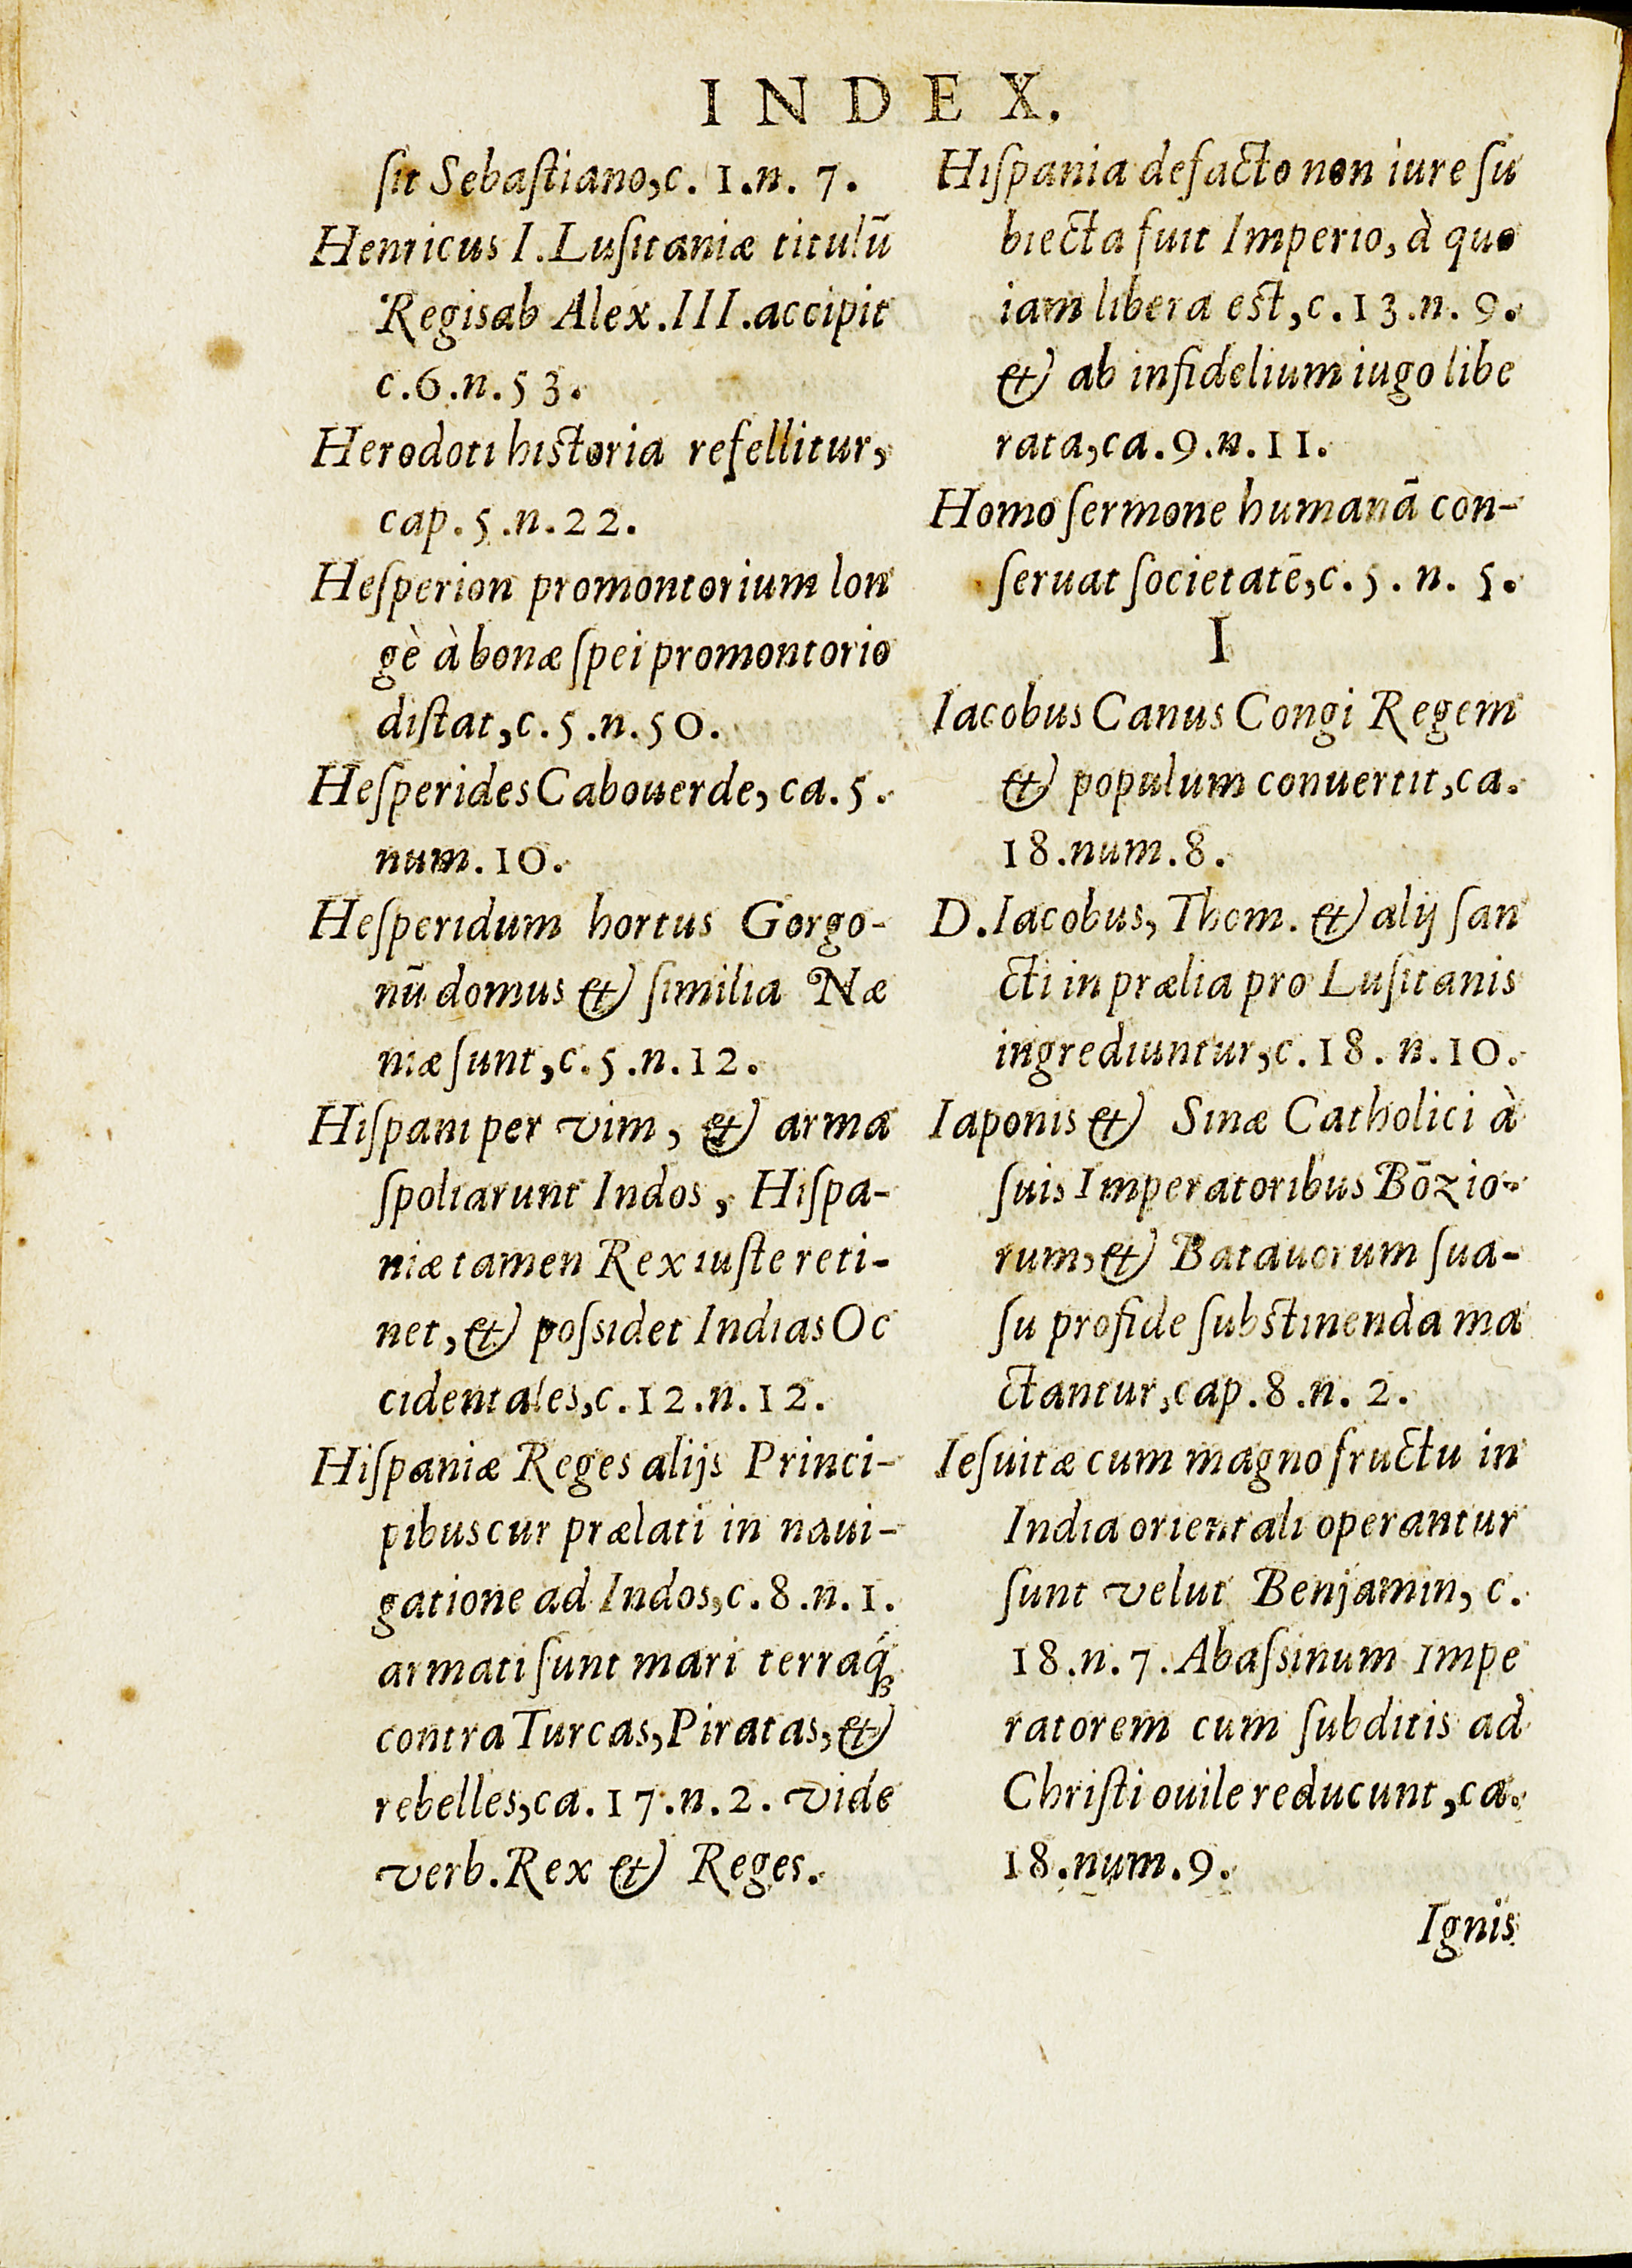 INDEX.
ſit Sebaſtiano, c. 1. n. 7.
Henricus I. Luſitaniæ titulū
Regis ab Alex. III. accipit
c. 6. n. 53.
Herodoti hiſtoria refellitur,
cap. 5. n. 22.
Heſperion promontorium lon
gè à bonæ ſpei promontorio
diſtat, c. 5. n. 50.
Heſperides Cabouerde, ca. 5.
num. 10.
Heſperidum hortus Gorgo-
nū domus & ſimilia Næ
niæ ſunt, c. 5. n. 12.
Hiſpani per vim, & arma
ſpoliarunt Indos, Hiſpa-
niæ tamen Rex iuſte reti-
net, & poſsidet Indias Oc
cidentales, c. 12. n. 12.
Hiſpaniæ Reges alijs Princi-
pibus cur prælati in naui-
gatione ad Indos, c. 8. n. 1.
armati ſunt mari terraq́;
contra Turcas, Piratas, &
rebelles, ca. 17. n. 2. vide
verb. Rex & Reges.
Hiſpania de facto non iure ſu
biecta fuit Imperio, à quo
iam libera eſt, c. 13. n. 9.
& ab infidelium iugo libe
rata, ca. 9. n. 11.
Homo ſermone humanā con-
ſeruat ſocietatē, c. 5. n. 5.
I
Iacobus Canus Congi Regem
& populum conuertit, ca.
18. num. 8.
D. Iacobus, Thom. & alij ſan
cti in prælia pro Luſitanis
ingrediuntur, c. 18. n. 10.
Iaponis & Sinæ Catholici à
ſuis Imperatoribus Bōzio-
rum, & Batauorum ſua-
ſu pro fide ſubſtinenda ma
ctantur, cap. 8. n. 2.
Ieſuitæ cum magno fructu in
India orientali operantur
ſunt velut Benjamin, c.
18. n. 7. Abaſsinum Impe
ratorem cum ſubditis ad
Chriſti ouile reducunt, ca.
18. num. 9.
Ignis